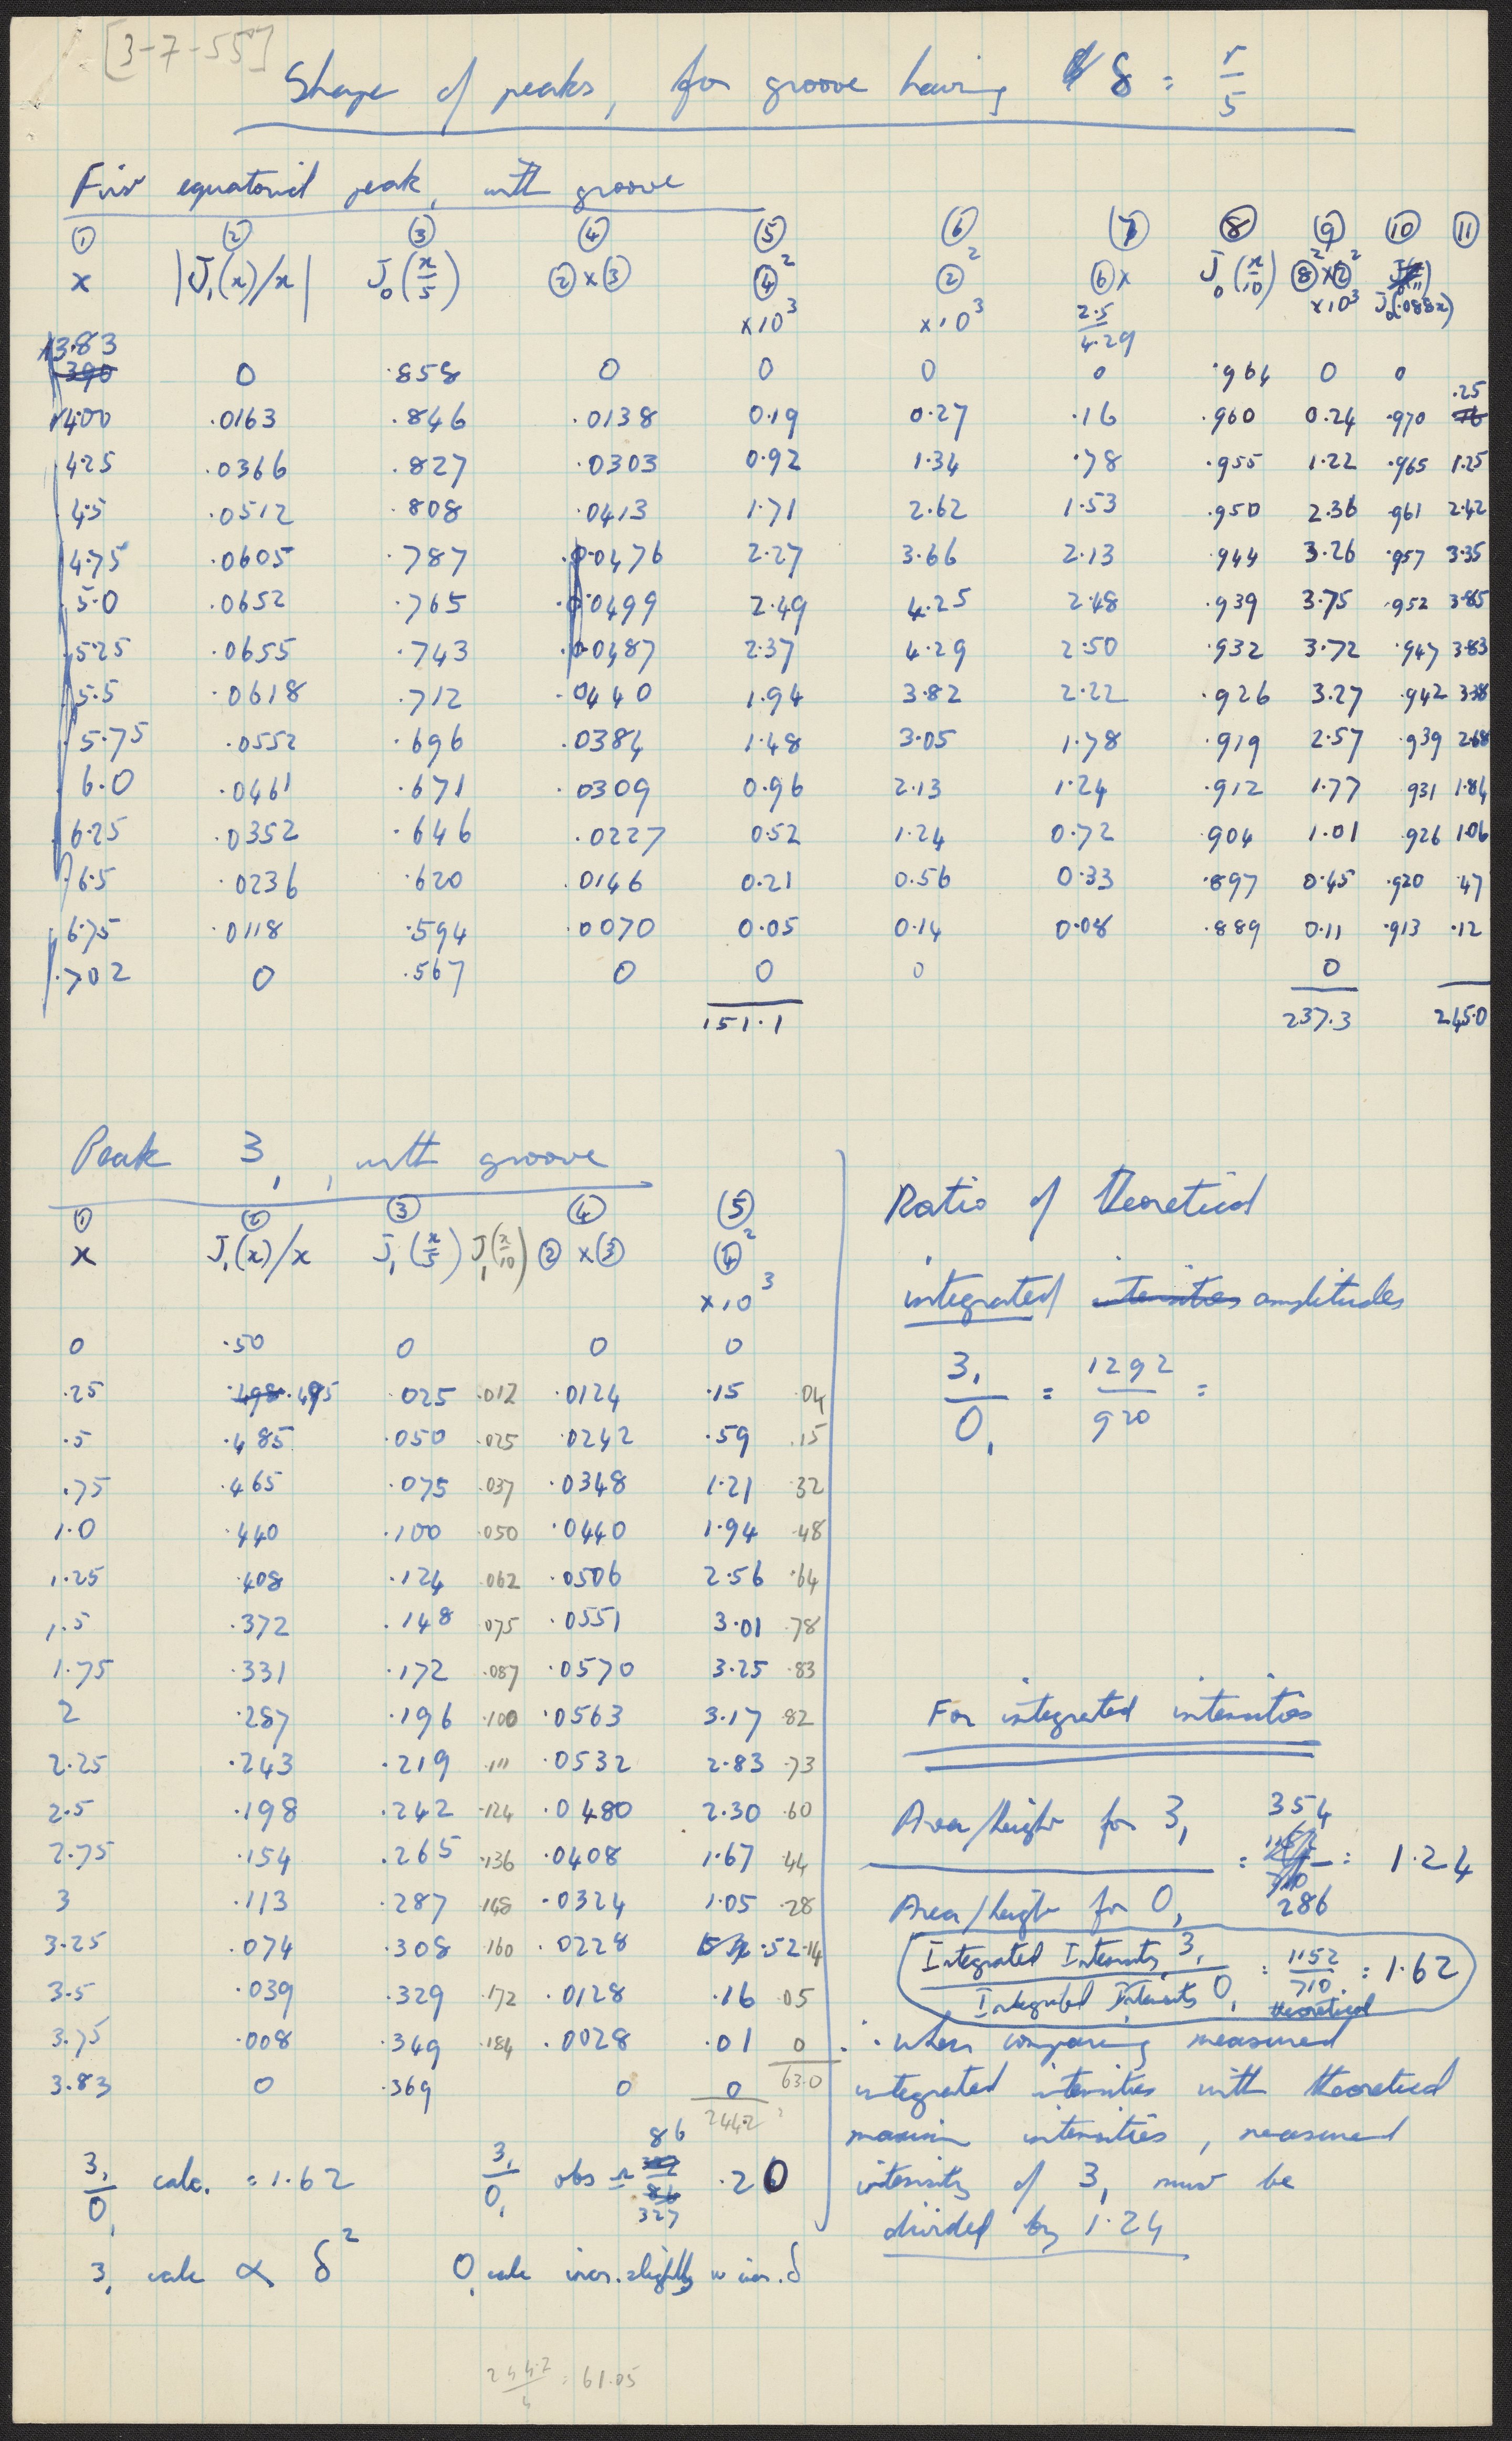 [3-7-55]
Shape of peaks, for groove having δ = r/5
First equatorial peak, with groove
① ② ③ ④ ⑤ ⑥ ⑦ ⑧ ⑨ ⑩ ⑪
x |J₁(x)/x| J₀(x/5) ②×③ ④² ②² ⑥× J₀(x/10) ⑧²×②² J₀(.088x)
×10³ ×10³ 2.5/4.29 ×10³
3.83 0 .858 0 0 0 0 .964 0 0
4.00 .0163 .846 .0138 0.19 0.27 .16 .960 0.24 .970 .25
4.25 .0366 .827 .0303 0.92 1.34 .78 .955 1.22 .965 1.25
4.5 .0512 .808 .0413 1.71 2.62 1.53 .950 2.36 .961 2.42
4.75 .0605 .787 .0476 2.27 3.66 2.13 .944 3.26 .957 3.35
5.0 .0652 .765 .0499 2.49 4.25 2.48 .939 3.75 .952 3.85
5.25 .0655 .743 .0487 2.37 4.29 2.50 .932 3.72 .947 3.83
5.5 .0618 .712 .0440 1.94 3.82 2.22 .926 3.27 .942 3.38
5.75 .0552 .696 .0384 1.48 3.05 1.78 .919 2.57 .939 2.68
6.0 .0461 .671 .0309 0.96 2.13 1.24 .912 1.77 .931 1.84
6.25 .0352 .646 .0227 0.52 1.24 0.72 .904 1.01 .926 1.06
6.5 .0236 .620 .0146 0.21 0.56 0.33 .897 0.45 .920 .47
6.75 .0118 .594 .0070 0.05 0.14 0.08 .889 0.11 .913 .12
7.02 0 .567 0 0 0 0
151.1 237.3 245.0
Peak 3₁, with groove
① ② ③ ④ ⑤
x J₁(x)/x J₁(x/5) J₁(x/10) ②×③ ④²
×10³
0 .50 0 0 0
.25 .498 .495 .025 .012 .0124 .15 .04
.5 .485 .050 .025 .0242 .59 .15
.75 .465 .075 .037 .0348 1.21 .32
1.0 .440 .100 .050 .0440 1.94 .48
1.25 .408 .124 .062 .0506 2.56 .64
1.5 .372 .148 .075 .0551 3.01 .78
1.75 .331 .172 .087 .0570 3.25 .83
2 .287 .196 .100 .0563 3.17 .82
2.25 .243 .219 .111 .0532 2.83 .73
2.5 .198 .242 .124 .0480 2.30 .60
2.75 .154 .265 .136 .0408 1.67 .44
3 .113 .287 .148 .0324 1.05 .28
3.25 .074 .308 .160 .0228 .52 .14
3.5 .039 .329 .172 .0128 .16 .05
3.75 .008 .349 .184 .0028 .01 0
3.83 0 .369 0 0 63.0
244.2
3₁/0₁ calc. = 1.62 3₁/0₁ obs = 86/327 .20
3₁ calc ∝ δ² 0₁ calc incr. slightly w incr. δ
244.2/4 = 61.05
Ratio of theoretical
integrated intensities amplitudes
3₁/0₁ = 1292/920 =
For integrated intensities
Area/height for 3₁ / Area/height for 0₁ = 354/286 = 1.24
Integrated Intensity 3₁ / Integrated Intensity 0₁ = 1152/710 = 1.62
theoretical
∴ when comparing measured
integrated intensities with theoretical
maximum intensities, measured
intensity of 3₁ must be
divided by 1.24